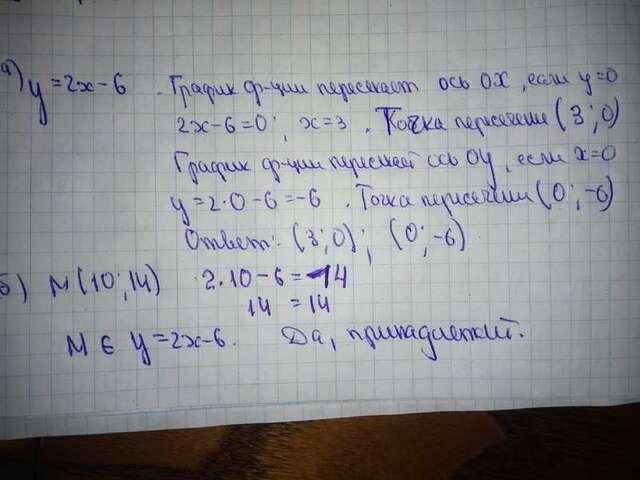 а) y=2x-6. График ф-ции пересекает ось OX, если y=0
2x-6=0; x=3. Точка пересечени (3;0)
График ф-ции пересекает ось OY, если x=0
y=2·0-6=-6. Точка пересечени (0;-6)
Ответ: (3;0); (0;-6).
б) M(10;14) 2·10-6=14
14=14
M ∈ y=2x-6. Да, принадлежит.